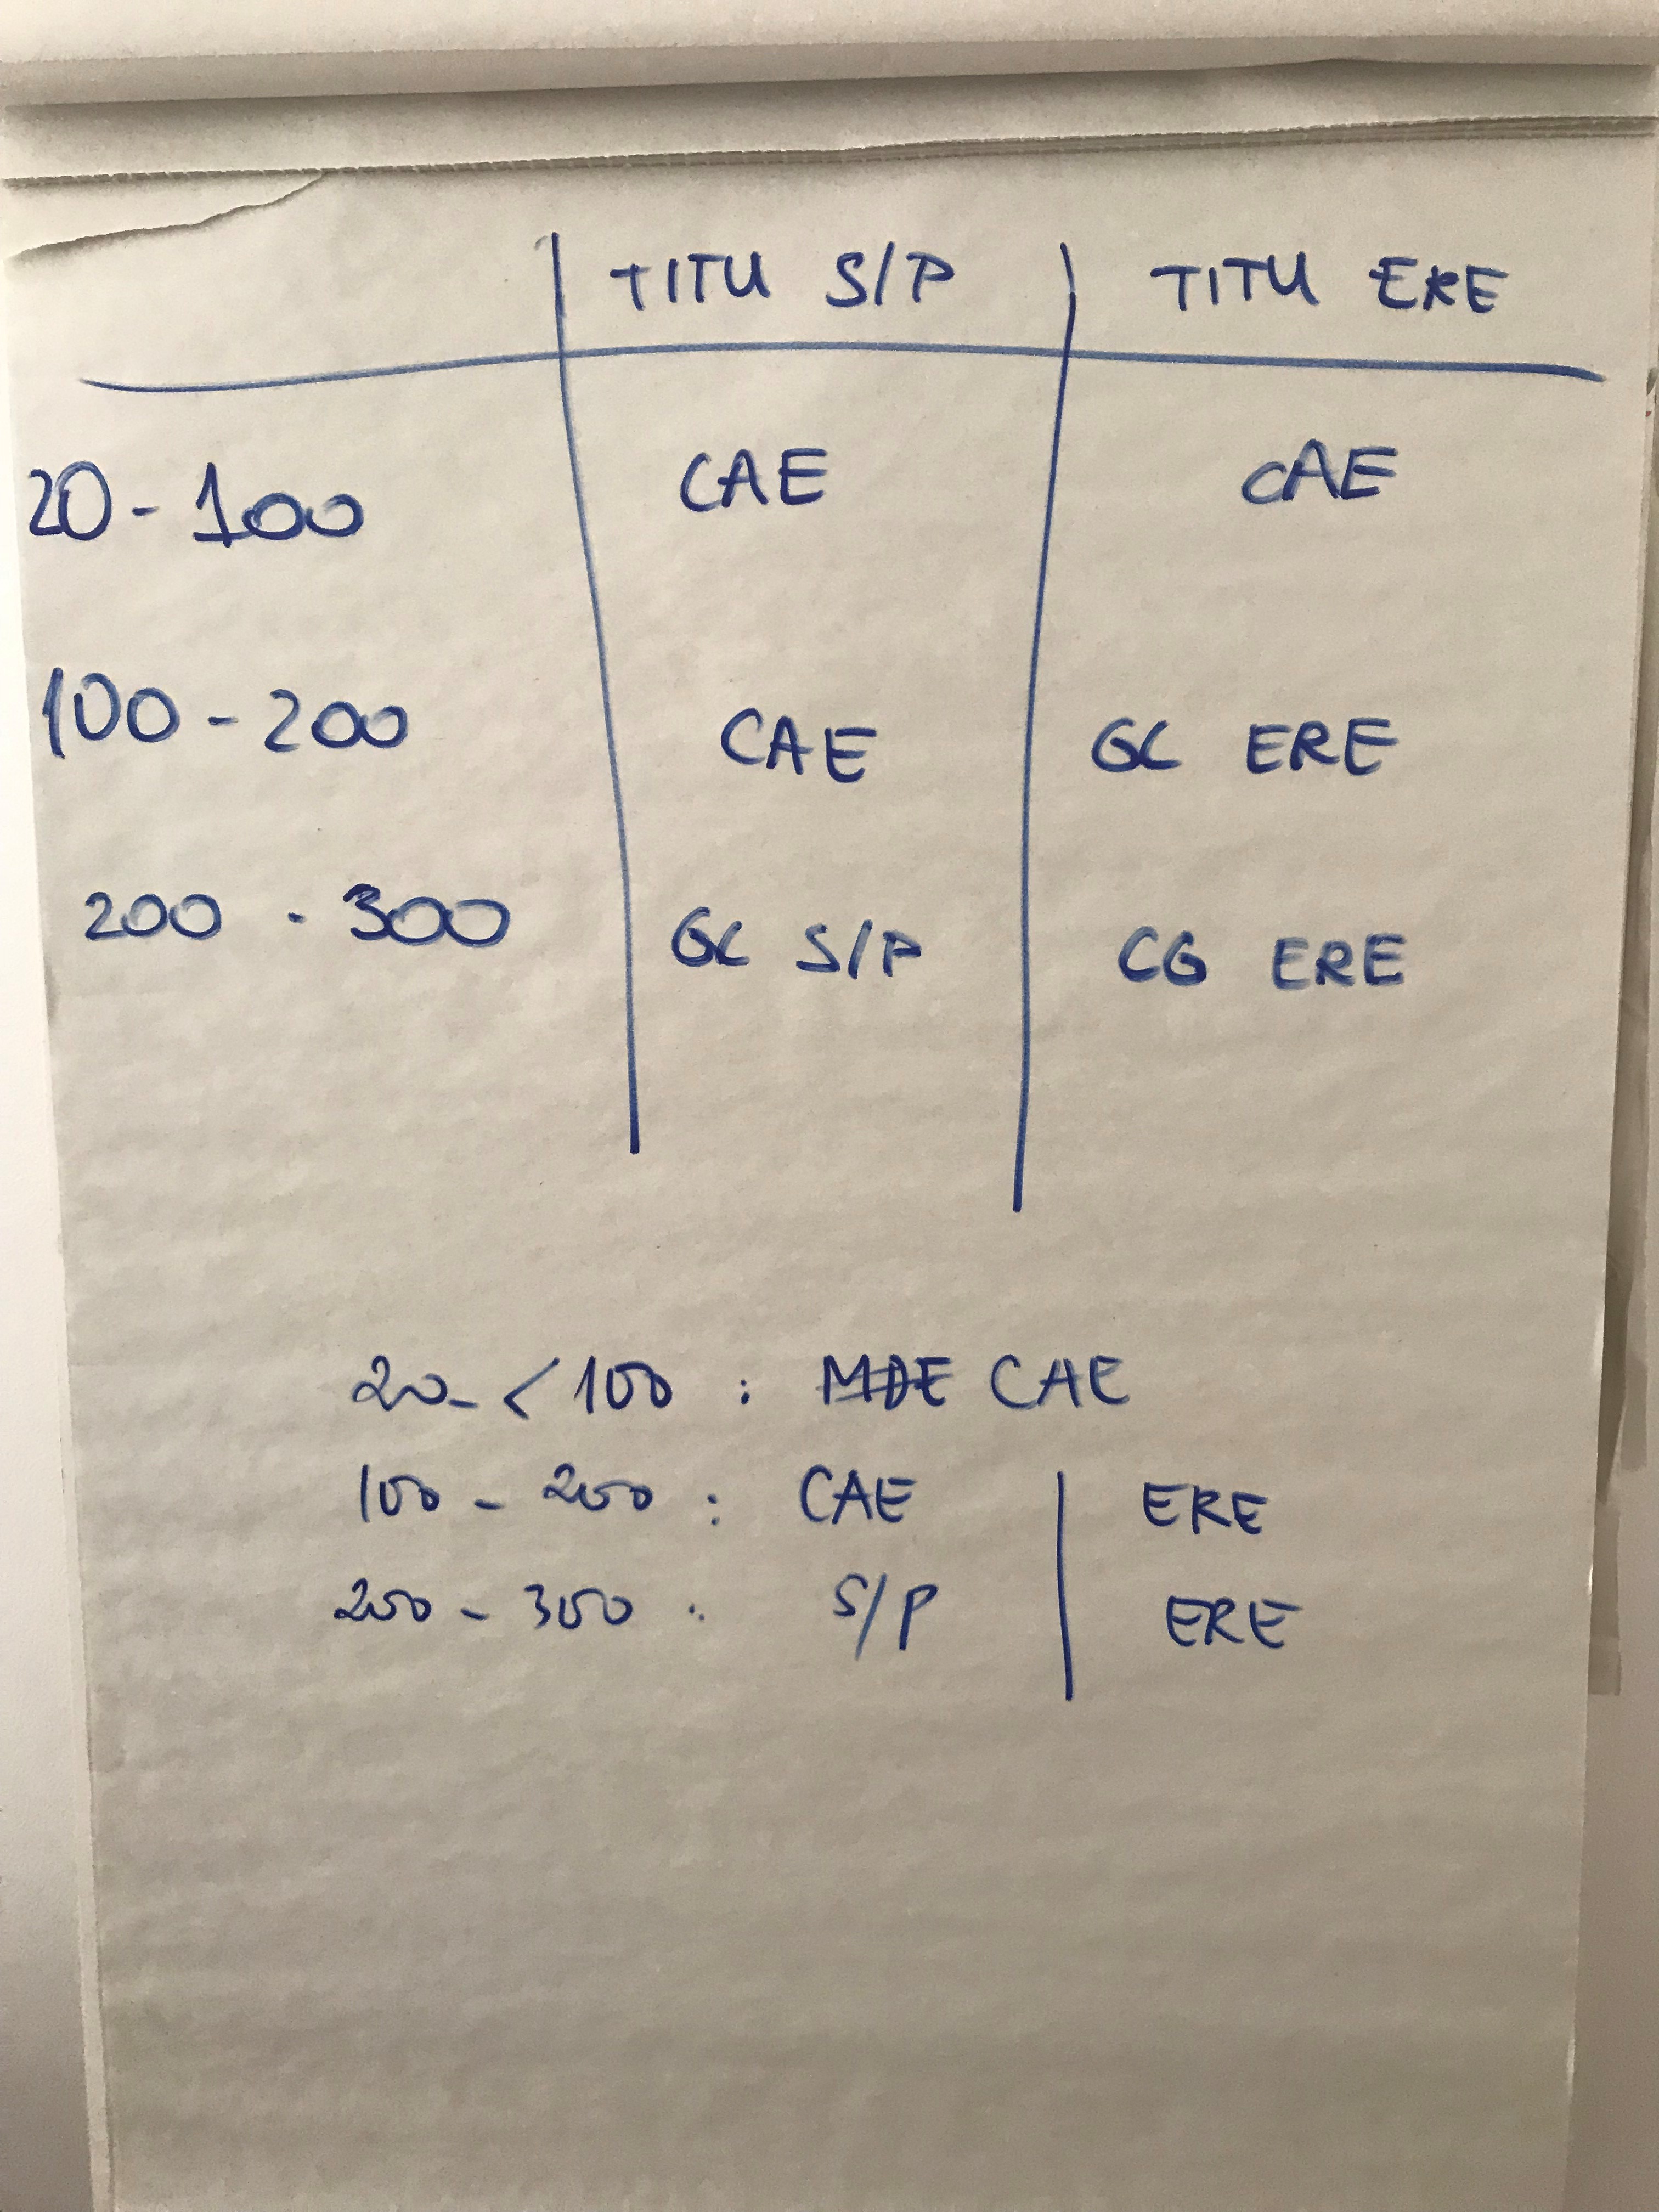 TITU S/P TITU ERE
20-100 CAE CAE
100-200 CAE GC ERE
200 - 300 GC S/P CG ERE
20-<100 : MDE CAE
100 - 200 : CAE ERE
200 - 300 : S/P ERE